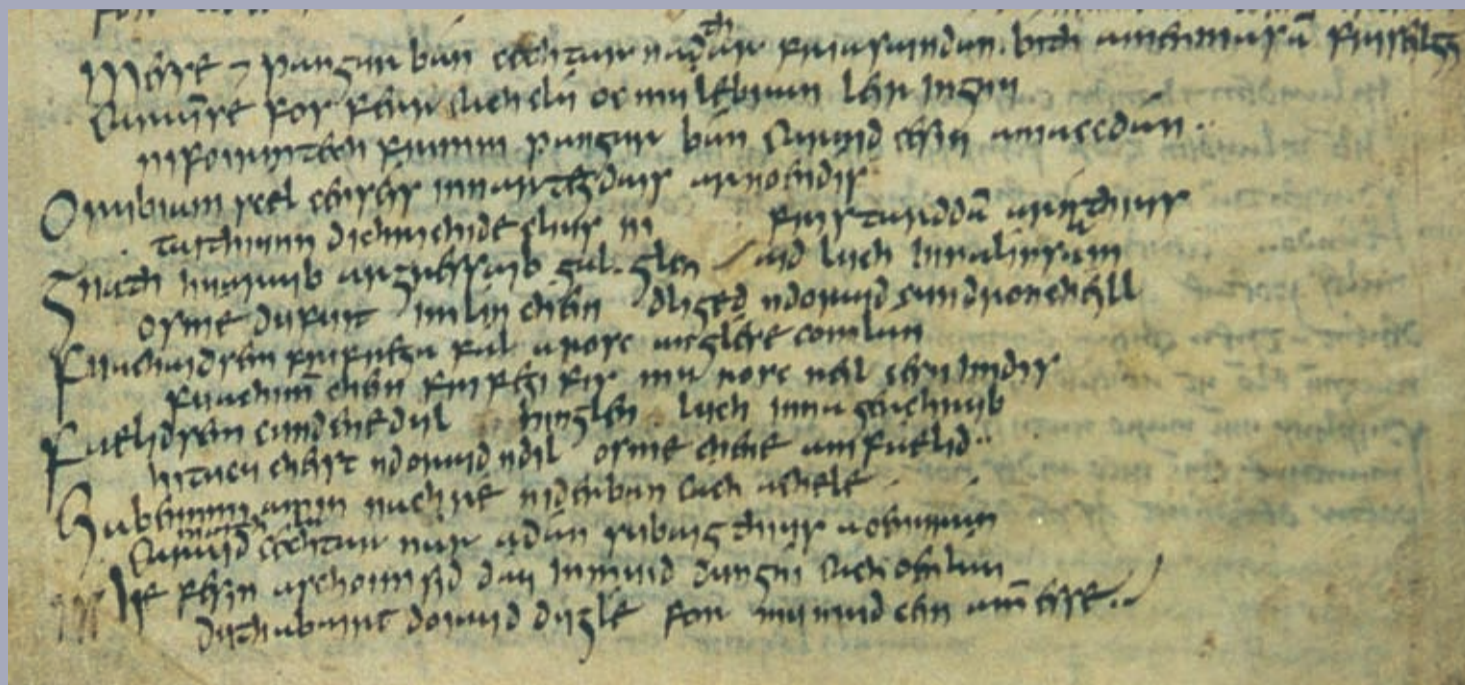 Messe ⁊ pangur bán cechtar nathar friasaindan. bith amenmasā friseilgg
Caraim̄se fos ferr cach clú oc mulebran léir ingnu
nifoirmtech frimm pangur bán caraid cesin amaccdán
Orubiam scél censcís innartegdais arnoendís
taithiunn dichrichide clius ni fristarddā arnáthius
gnáth huaraib argressaib gal. glen aid luch innalinsam
osmé dufuit imlín chéin dliged ndoraid cundronchéill
Fuachaidsem frifrega fál arosc anglése comlán
fuachim̄ chéin frifégi fis mu rosc réil cesu imdis
Faelidsem cundene dul hinglen luch inna gérchrub
hitucu cheist ndoraid ndil osmé chene amfaelid
Ciabeimmi amin nach ré niderban cach achele
maith la
caraid cechtar nár adán subaigthius aoenurán
hé fesin aschoimsid dáu inmuid dungní cach oenláu
duthabairt doraid duglé for mumud céin am̄esse